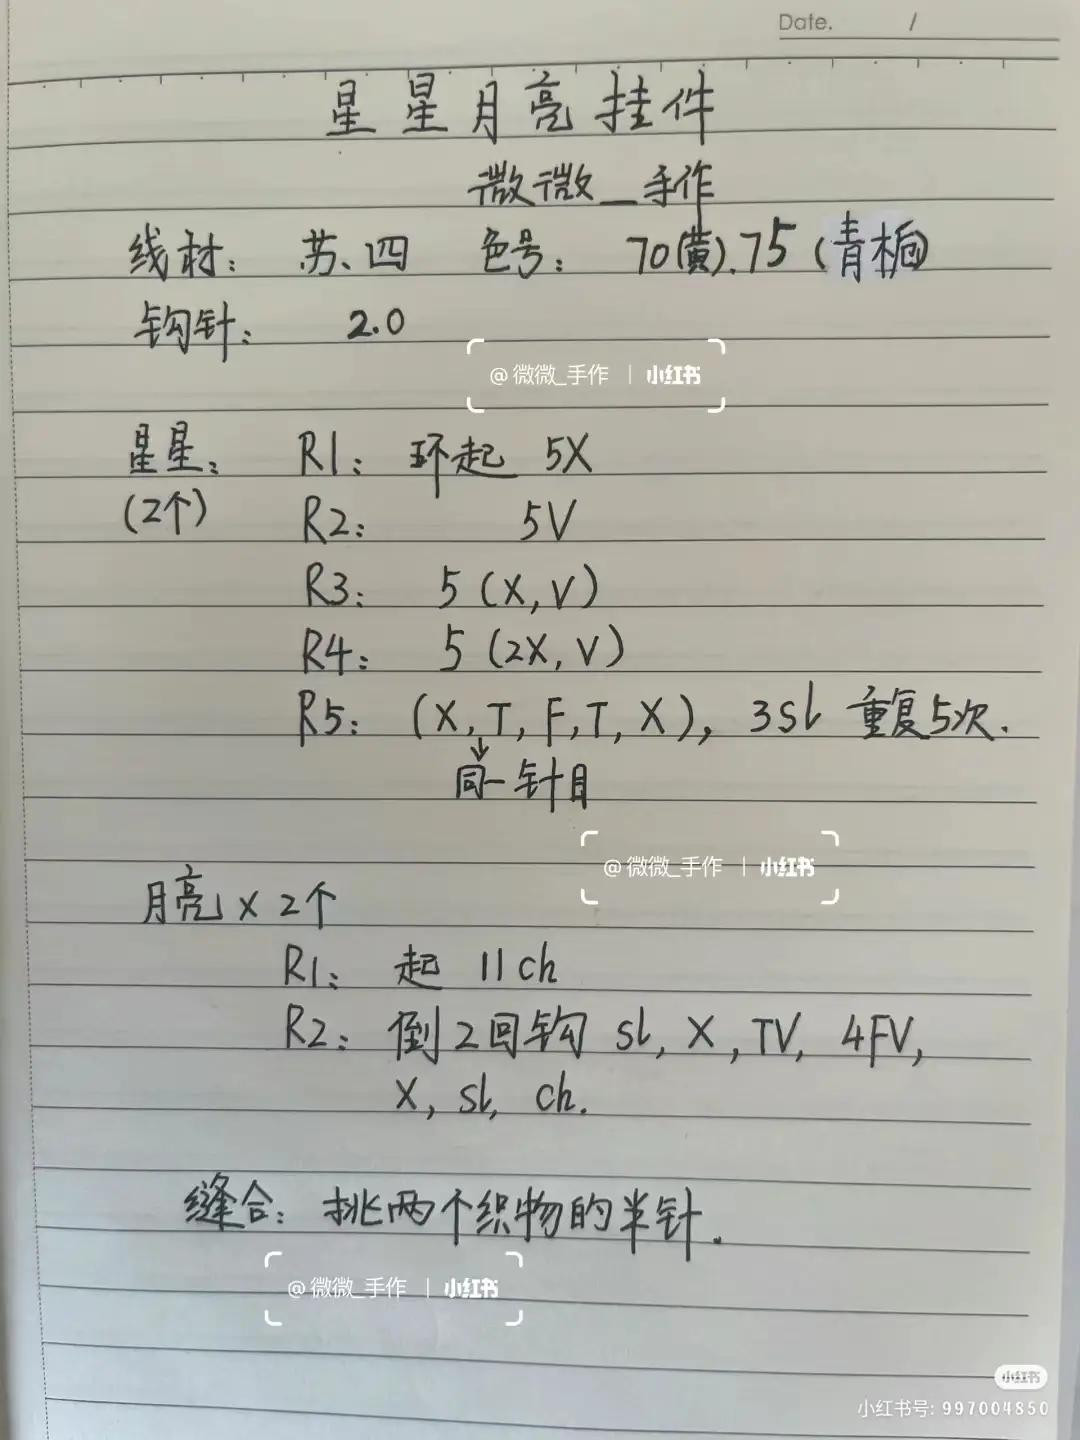 Date. /
星星月亮挂件
微微_手作
线材: 苏、四 色号: 70(黄).75(青栀)
钩针: 2.0
@微微_手作 | 小红书
星星: R1: 环起 5X
(2个) R2: 5V
R3: 5 (X,V)
R4: 5 (2X,V)
R5: (X,T,F,T,X), 3sl 重复5次.
↓
同一针目
@微微_手作 | 小红书
月亮 x 2个
R1: 起 11ch
R2: 倒2回钩 sl, X, TV, 4FV,
X, sl, ch.
缝合: 挑两个织物的半针.
@微微_手作 | 小红书
小红书
小红书号: 997004850